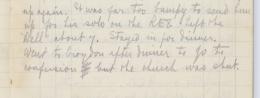 up again. It was far too bumpy to send him
up for his solo on the R.E.8. Left the
Well about 7. Stayed in for dinner.
Went to Croydon after dinner to go to
confession but the church was shut.